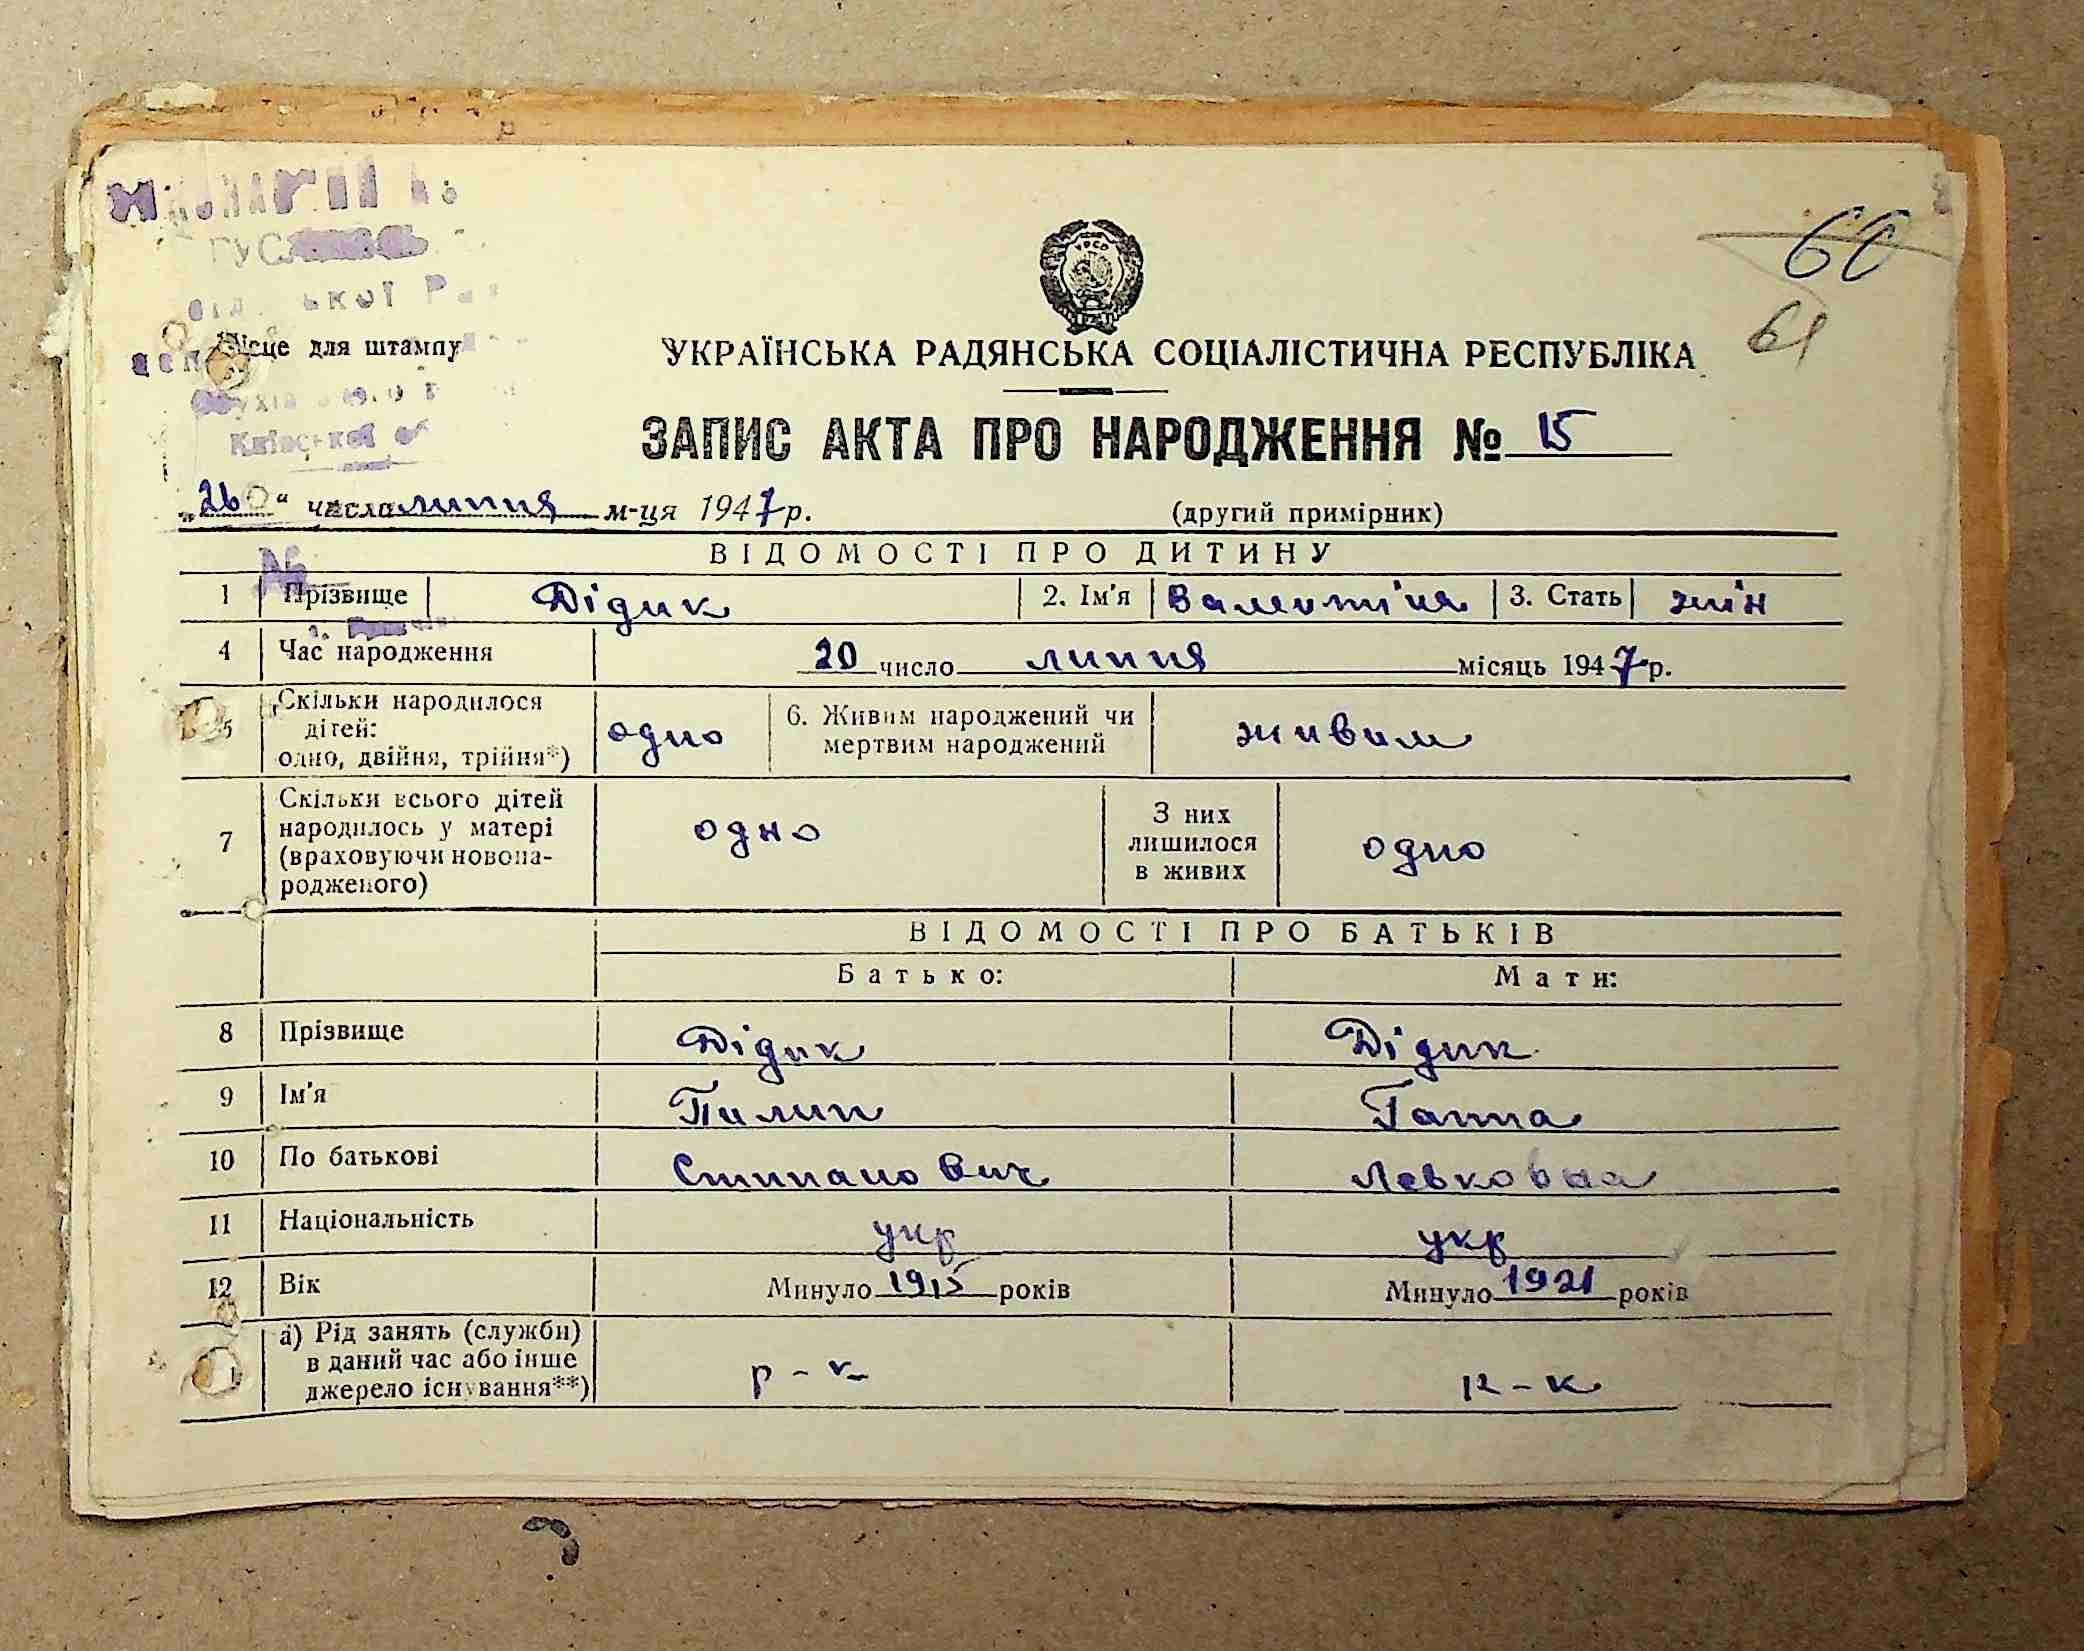 60
61
Місце для штампу
Київської
УКРАЇНСЬКА РАДЯНСЬКА СОЦІАЛІСТИЧНА РЕСПУБЛІКА
ЗАПИС АКТА ПРО НАРОДЖЕННЯ № 15
„26“ числа липня м-ця 1947 р. (другий примірник)
ВІДОМОСТІ ПРО ДИТИНУ
1 Прізвище Дідик 2. Ім'я Валентіня 3. Стать жін
4 Час народження 20 число липня місяць 1947 р.
5 Скільки народилося дітей: одно, двійня, трійня*) одно 6. Живим народжений чи мертвим народжений живим
7 Скільки всього дітей народилось у матері (враховуючи новона-родженого) одно З них лишилося в живих одно
ВІДОМОСТІ ПРО БАТЬКІВ
Батько: Мати:
8 Прізвище Дідик Дідик
9 Ім'я Пилип Ганна
10 По батькові Стипанович Левковна
11 Національність укр укр
12 Вік Минуло 1915 років Минуло 1921 років
а) Рід занять (служби) в даний час або інше джерело існування**) р-к р-к